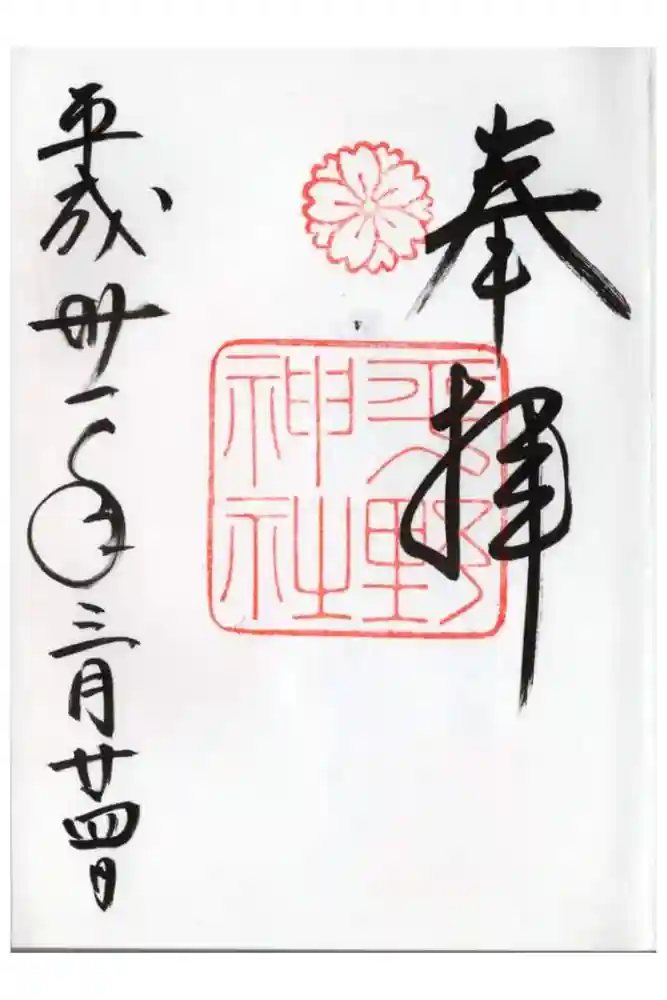 奉拝
平野神社
平成卅一年三月廿四日